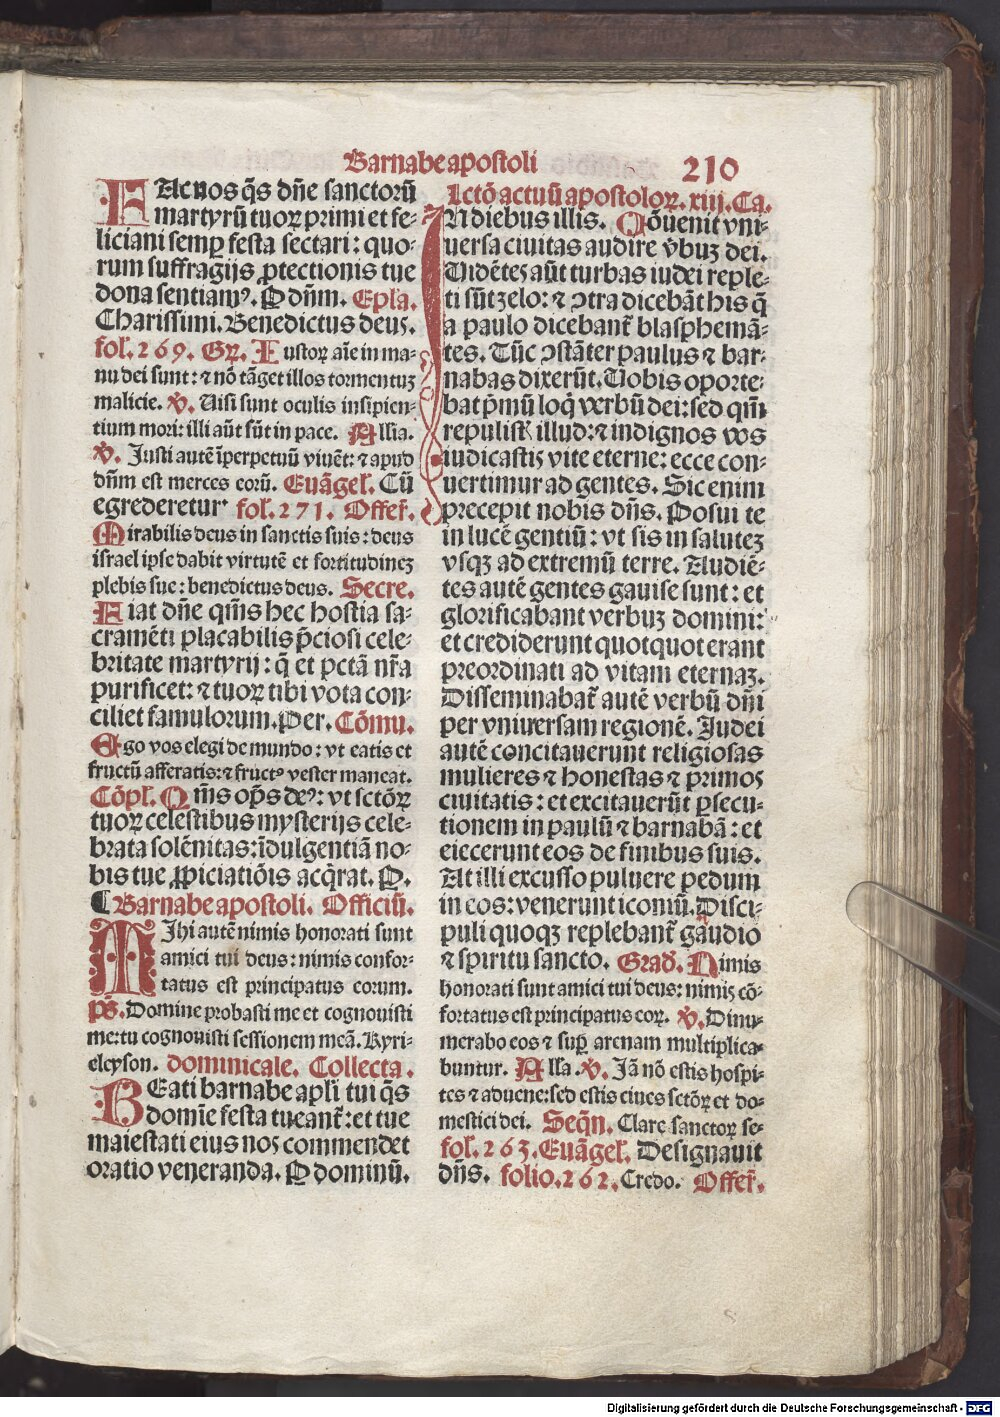 Barnabe apostoli 210
FAc nos q̄s dn̄e sanctorū
martyrū tuoꝝ primi et fe-
liciani semꝑ festa sectari: quo-
rum suffragijs ꝓtectionis tue
dona sentiamꝰ. P dn̄m. Epl̄a.
Charissimi. Benedictus deus.
fol. 269. Gꝝ. Iustoꝝ aīe in ma-
nu dei sunt: ⁊ nō tāget illos tormentuꝫ
malicie. ℣. Uisi sunt oculis insipien-
tium mori: illi aūt sūt in pace. Allīa.
℣. Justi autē īperpetuū viuēt: ⁊ apud
dn̄m est merces eorū. Euāgel̄. Cū
egrederetur fol. 271. Offer̄.
Mirabilis deus in sanctis suis: deus
israel ipse dabit virtutē et fortitudineꝫ
plebis sue: benedictus deus. Secre.
Fiat dn̄e qm̄s hec hostia sa-
cramēti placabilis p̄ciosi cele-
britate martyrij: q̄ et pctā nr̄a
purificet: ⁊ tuoꝝ tibi vota con-
ciliet famulorum. Per. Cōmu.
Ego vos elegi de mundo: vt eatis et
fructū afferatis: ⁊ fructꝰ vester maneat.
Cōpl̄. Qm̄s op̄s deꝰ: vt sctōꝝ
tuoꝝ celestibus mysterijs cele-
brata solēnitas: īdulgentiā no-
bis tue ꝓpiciatiōis acq̄rat. P.
¶ Barnabe apostoli. Officiū.
MIhi autē nimis honorati sunt
amici tui deus: nimis confor-
tatus est principatus eorum.
ps̄. Domine probasti me et cognouisti
me: tu cognouisti sessionem meā. Kyri-
eleyson. dominicale. Collecta.
BEati barnabe apl̄i tui q̄s
domīe festa tueant᷑: et tue
maiestati eius nos commendet
oratio veneranda. P dominū.
Lctō actuū apostoloꝝ. xiij. Ca.
IN diebus illis. Cōuenit vni-
uersa ciuitas audire v̄buꝫ dei.
Uidētes aūt turbas iudei reple-
ti sūt zelo: ⁊ ↄtra dicebāt his q̄
a paulo dicebant᷑ blasphemā-
tes. Tūc ↄstāter paulus ⁊ bar-
nabas dixerūt. Uobis oporte-
bat p̄mū loq̄ verbū dei: sed qm̄
repulistꝭ illud: ⁊ indignos vos
iudicastis vite eterne: ecce con-
uertimur ad gentes. Sic enim
precepit nobis dn̄s. Posui te
in lucē gentiū: vt sis in saluteꝫ
vsqꝫ ad extremū terre. Audiē-
tes autē gentes gauise sunt: et
glorificabant verbuꝫ domini:
et crediderunt quotquot erant
preordinati ad vitam eternaꝫ.
Disseminabat᷑ autē verbū dn̄i
per vniuersam regionē. Judei
autē concitauerunt religiosas
mulieres ⁊ honestas ⁊ primos
ciuitatis: et excitauerūt ꝑsecu-
tionem in paulū ⁊ barnabā: et
eiecerunt eos de finibus suis.
At illi excusso puluere pedum
in eos: venerunt iconiū. Disci-
puli quoqꝫ replebant᷑ gaudio
⁊ spiritu sancto. Grad. Nimis
honorati sunt amici tui deus: nimis cō-
fortatus est principatus eoꝝ. ℣. Dinu-
merabo eos ⁊ suꝑ arenam multiplica-
buntur. Alla. ℣. Jā nō estis hospi-
tes ⁊ aduene: sed estis ciues sctōꝝ et do-
mestici dei. Seqn̄. Clare sanctoꝝ se-
fol. 263. Euāgel̄. Designauit
dn̄s. folio. 262. Credo. Offer̄.
Digitalisierung gefördert durch die Deutsche Forschungsgemeinschaft - DFG